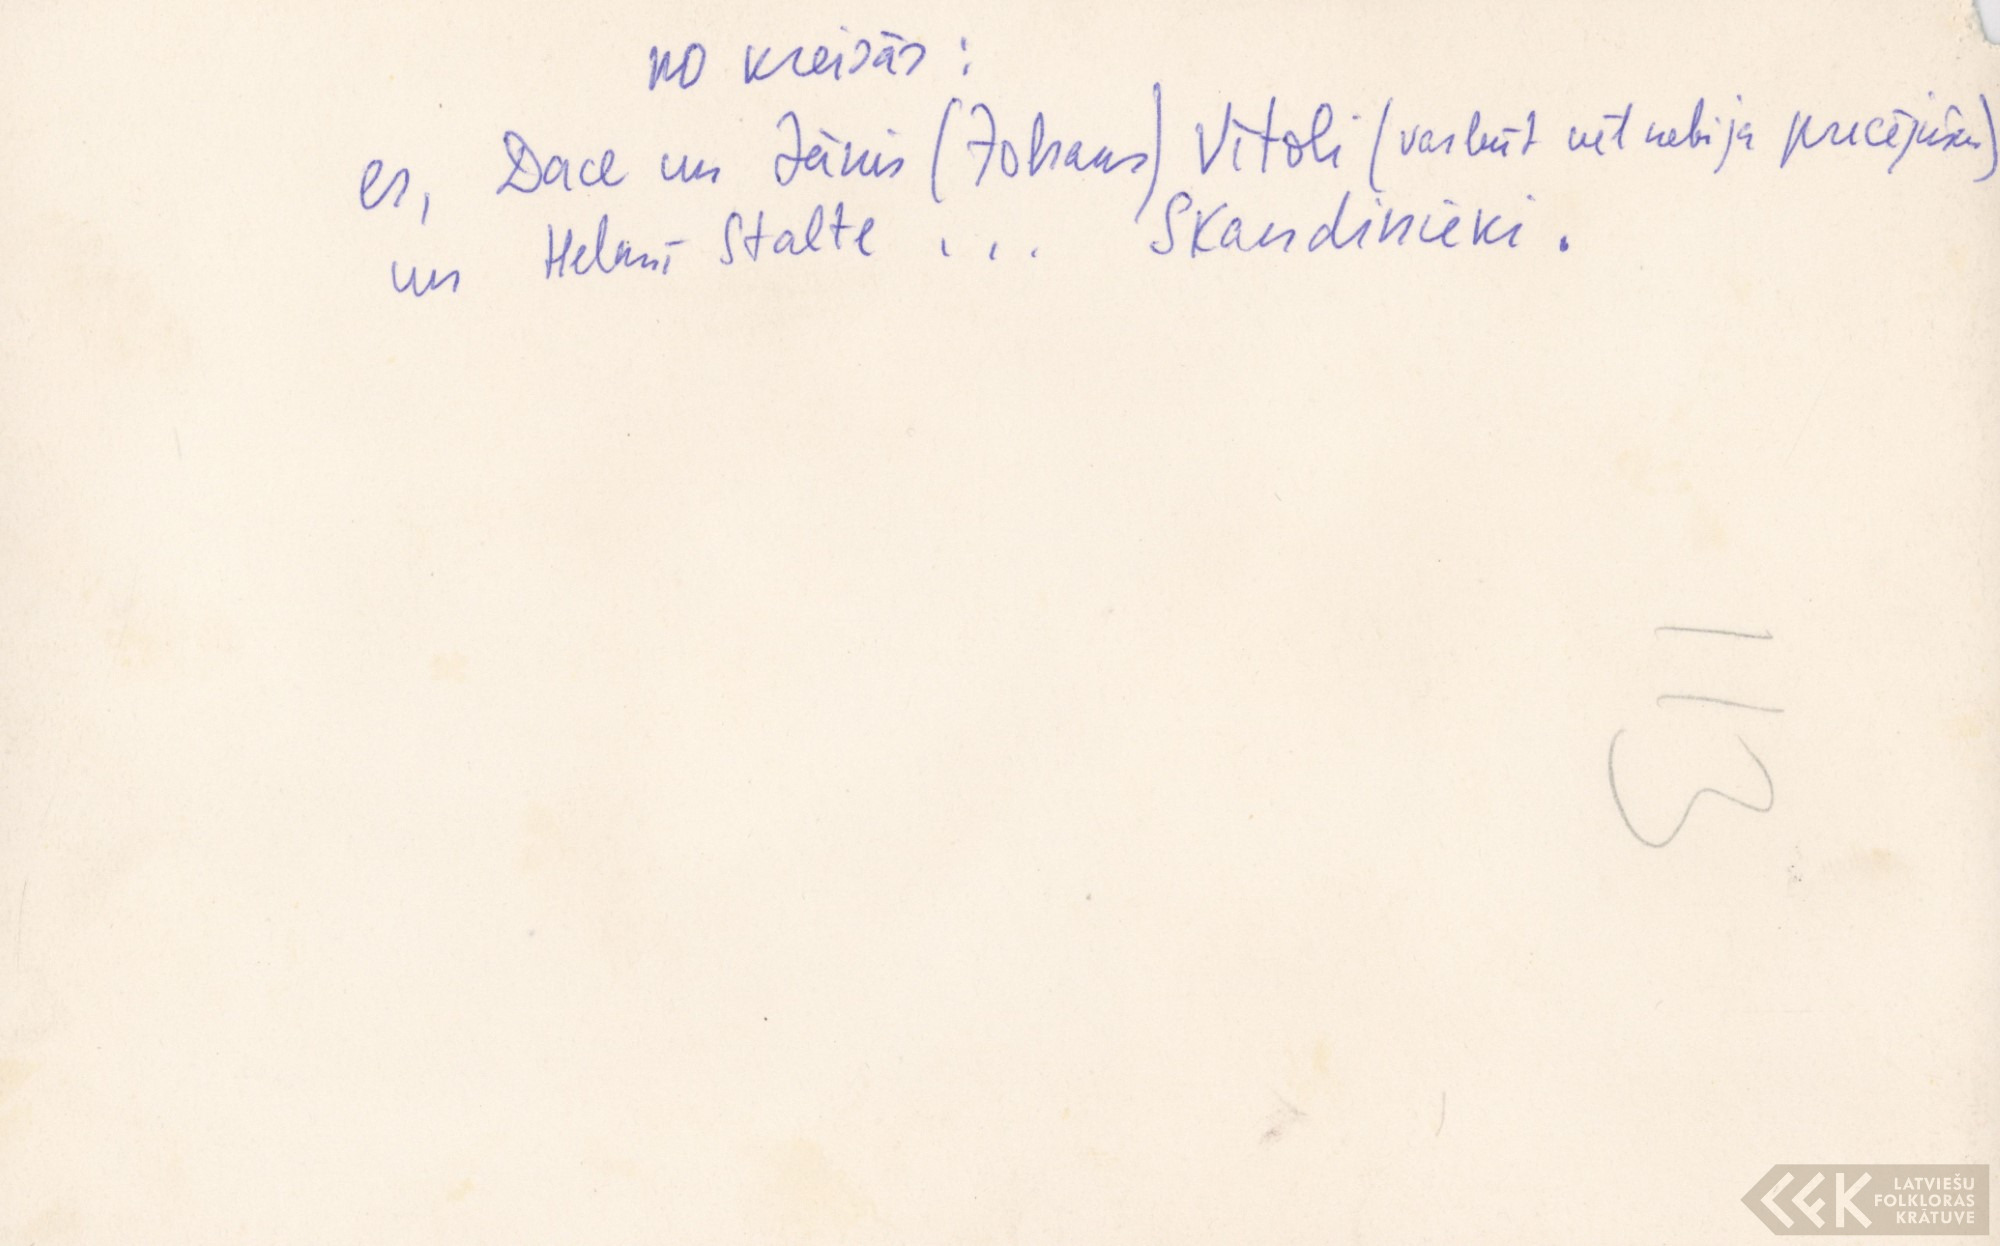 no kreisās:
es, Dace un Jānis (Johans) Vītoli (varbūt vēl nebija precējušies)
un Helmī Stalte ... Skandinieki.
113
LATVIEŠU
FOLKLORAS
KRĀTUVE